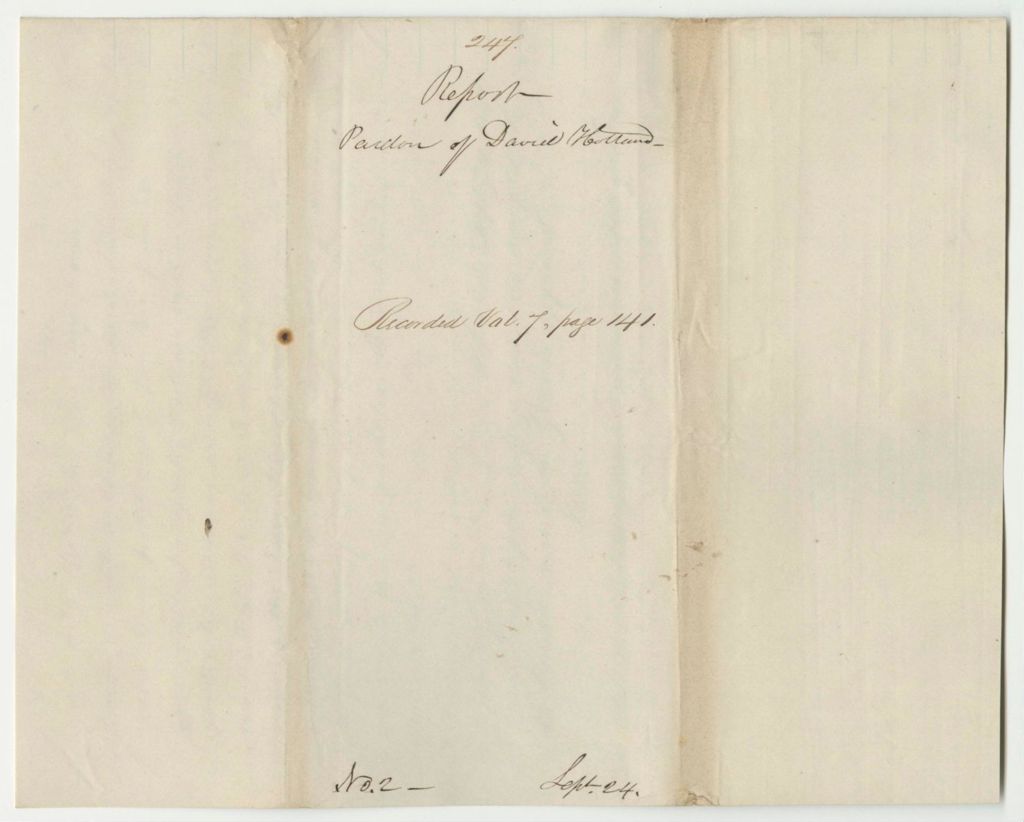 247.
Report
Pardon of David Holland
Recorded Vol. 7, page 141.
No. 2 —
Sept. 24.